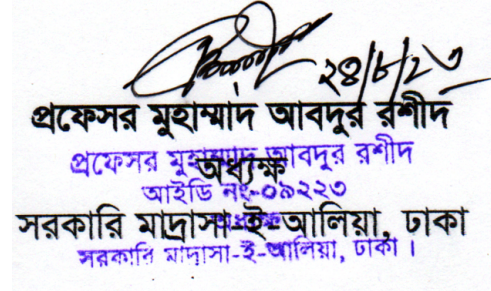 ২৪/৮/২৩
প্রফেসর মুহাম্মাদ আবদুর রশীদ
প্রফেসর মুহাম্মাদ আবদুর রশীদ
অধ্যক্ষ
আইডি নং-০৯২২৩
সরকারি মাদ্রাসা-ই-আলিয়া, ঢাকা
অধ্যক্ষ
সরকারি মাদ্রাসা-ই-আলিয়া, ঢাকা।